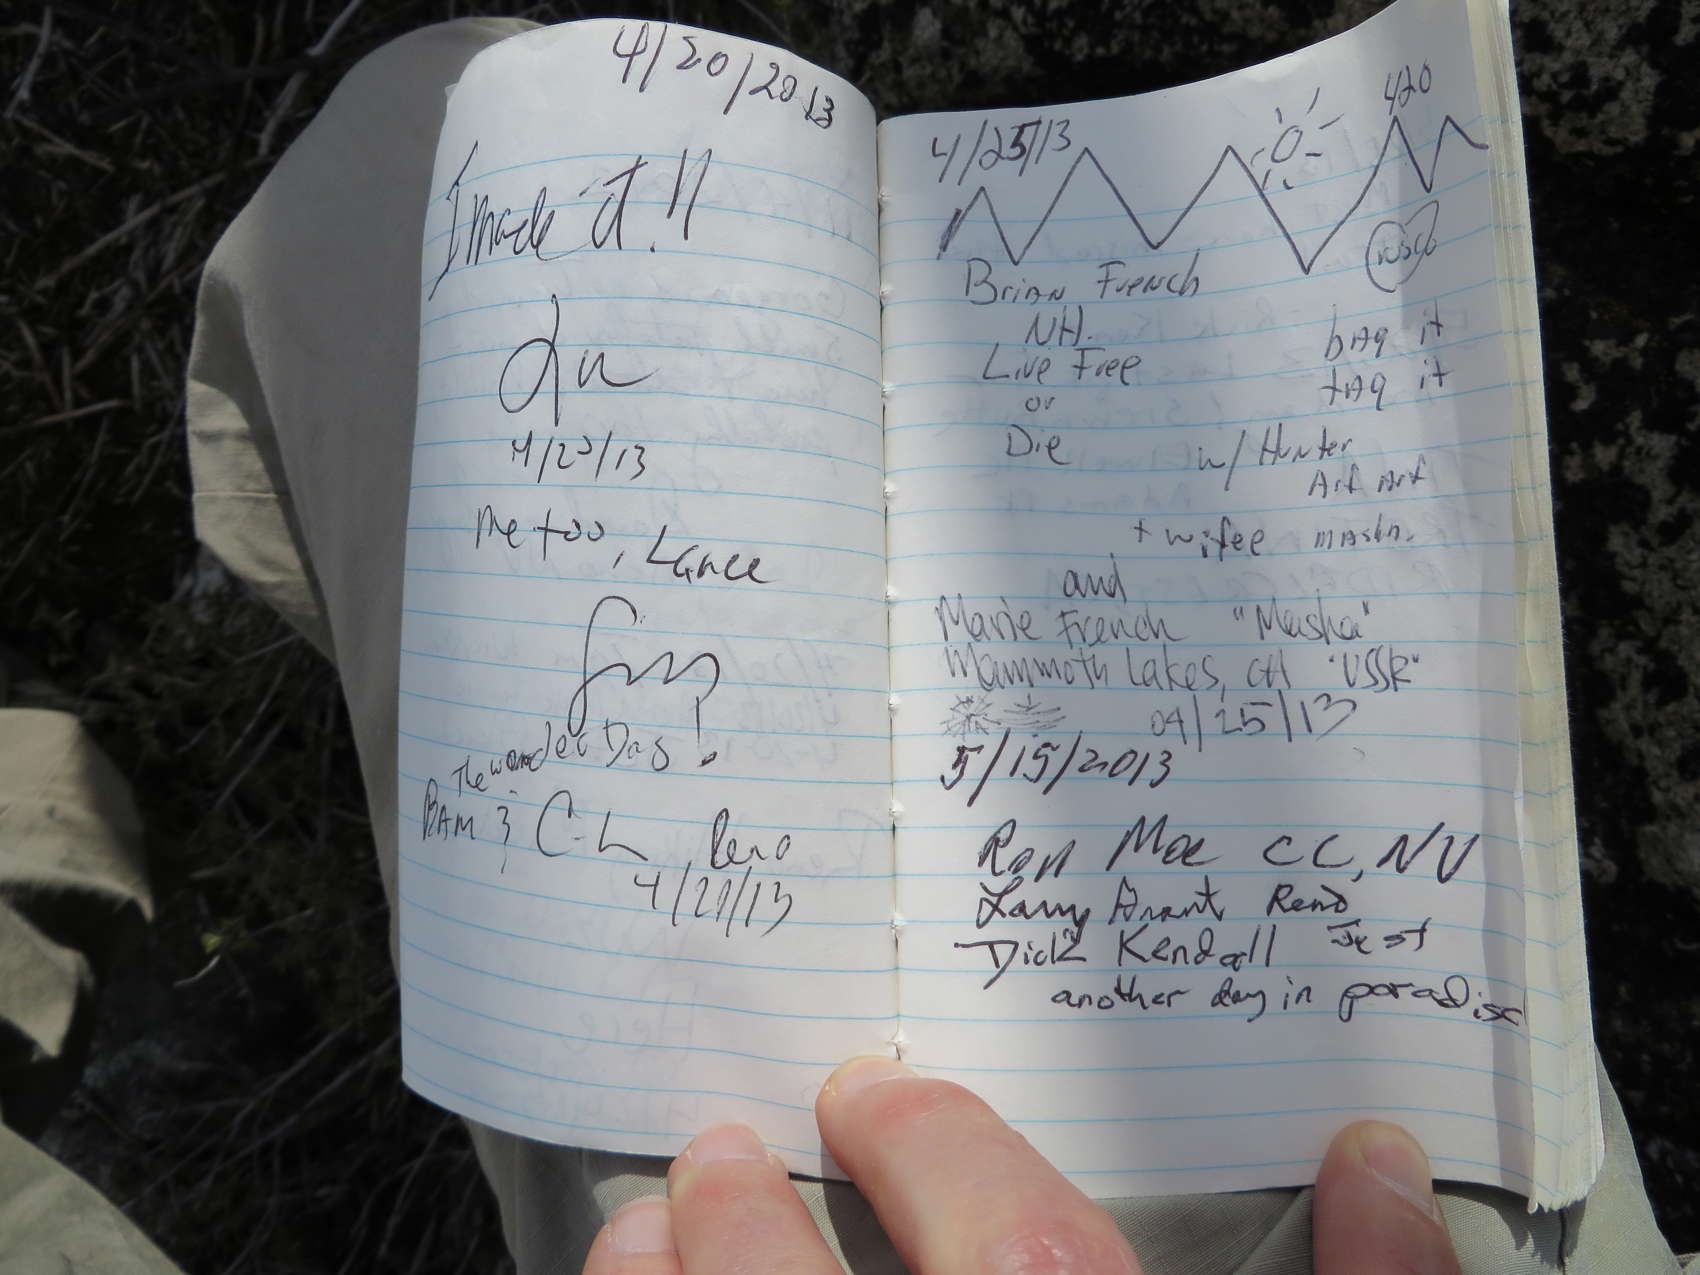 4/20/2013
I made it!!
4/20/13
me too, Lance
The wonder Dog!
BAM & C-L, Reno
4/20/13
4/25/13
420
Brian French
NH.
Live Free
or
Die
bAg it
tAg it
w/ Hunter
Arf Arf
+ wifee
and
Marie French "Masha"
Mammoth Lakes, CA "USSR"
04/25/13
5/15/2013
Ron Moe CC, NV
Larry Grant Reno
Dick Kendall Jest
another day in paradise